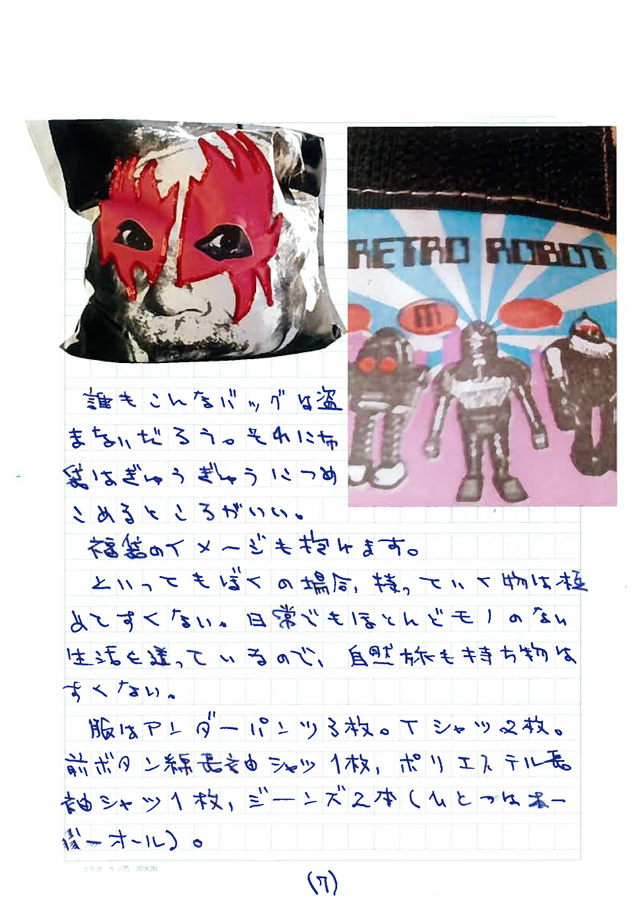 RETRO ROBOT
m
誰もこんなバッグは盗
まないだろう。それに布
袋はぎゅうぎゅうにつめ
こめるところがいい。
福袋のイメージも抱けます。
といってもぼくの場合、持っていく物は極
めてすくない。日常でもほとんどモノのない
生活を送っているので、自然旅も持ち物は
すくない。
服はアンダーパンツ3枚。Tシャツ2枚。
前ボタン綿長袖シャツ1枚，ポリエステル長
袖シャツ1枚，ジーンズ2本(ひとつはオー
バーオール)。
(7)